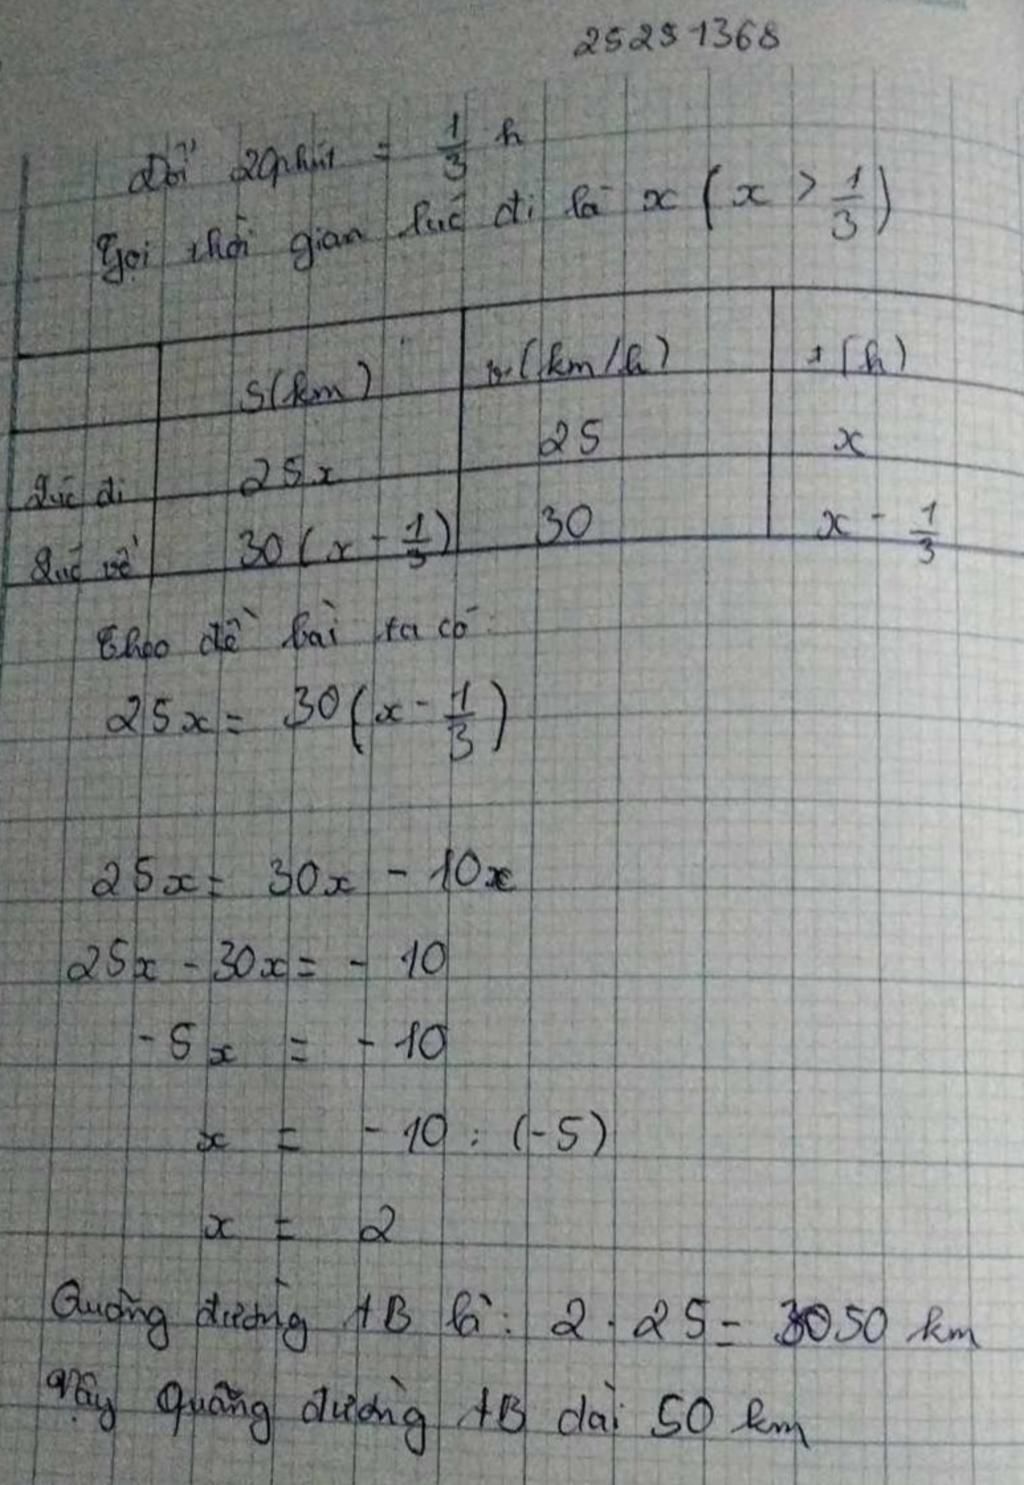 25251368
Đổi 20phút = 1/3 h
Gọi thời gian lúc đi là x (x > 1/3)
S(km) v(km/h) t(h)
Lúc đi 25x 25 x
Lúc về 30(x - 1/3) 30 x - 1/3
Theo đề bài ta có:
25x = 30(x - 1/3)
25x = 30x - 10x
25x - 30x = - 10
-5x = - 10
x = - 10 : (-5)
x = 2
Quãng đường AB là: 2 . 25 = 50 km
Vậy quãng đường AB dài 50 km